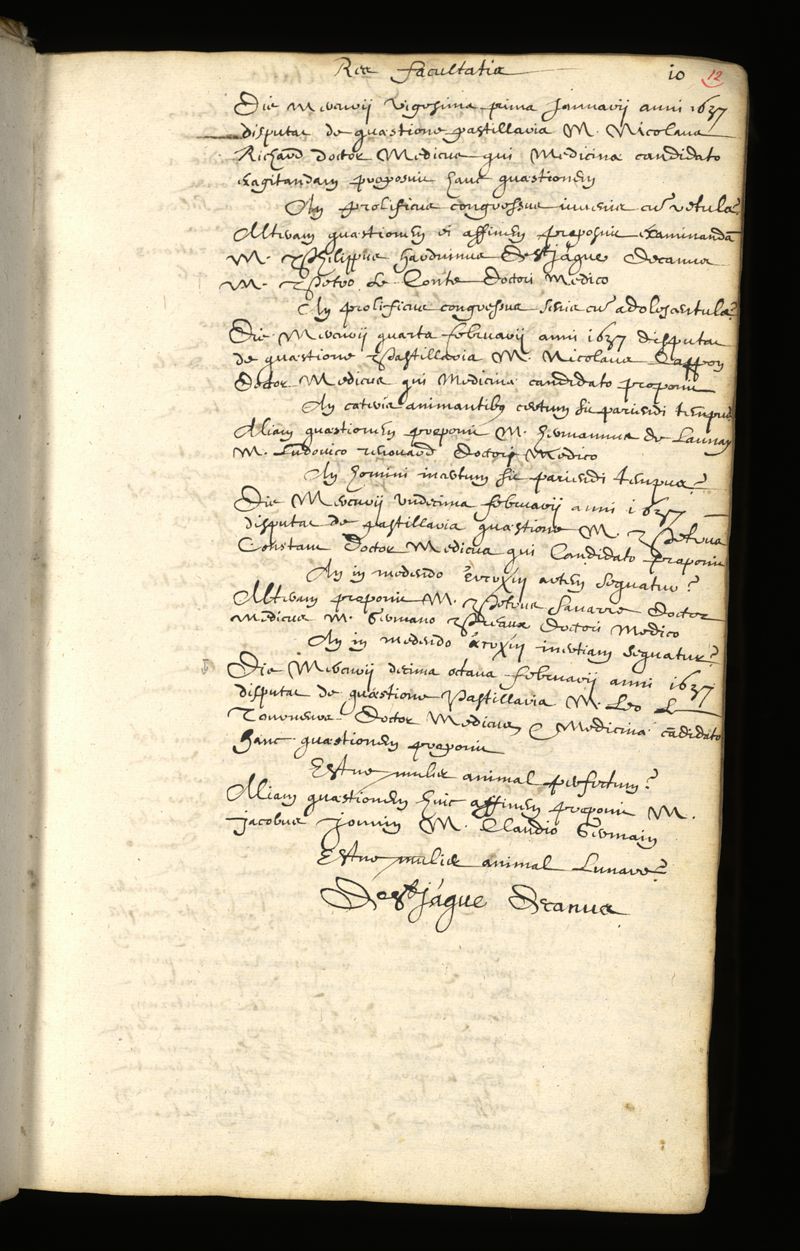 Res facultatis 10 12
Die Mercurij vigesima prima Januarij anni 1637
disputat de quæstione pastillaria M. Nicolaus
Richard doctor Medicus qui Medicinæ candidato
exagitandam proposuit hanc quæstionem
An prolificus congressus iuvenis cũ vetula?
Alteram quæstionem ei affinem proposuit examinandã
M. Philippus harduinus de St Jàque Decanus
M. Petro Le Conte Doctori Medico
An prolificus congressus senis cũ adolescentula?
Die Mercurij quarta februarij anni 1637 disputat
de quæstione Pastillaria M. Nicolaus Cappon
Doctor Medicus qui Medicinæ candidato proponit
An cæteris animantibq certum sit pariendi tempus
Aliam quæstionem proponit M. hermannus de Launay
M. Ludovico renouard Doctori Medico
An homini incertum sit pariendi tempus?
Die Mercurij undecima februarij anni 1637
disputat de pastillaria quæstione M. Petrus
Constant Doctor Medicus qui Candidato proponit
An in medendo artem sequatur?
Alteram proponit M. Petrus Savarre Doctor
Medicus M. Germano Preaux Doctori Medico
An in medendo inertiam sequatur?
Die Mercurij decima octava februarij anni 1637
disputat de quæstione Pastillaria M. Leo Le
Tourneux Doctor Medicus e Medicinæ cãdidato
hanc quæstionem proponit
Estne mulier animal perfectum?
Aliam quæstionem huic affinem proponit M.
Jacobus Jouvin M. Claudio Germain
Estne mulier animal Lunare?
De St Jàque Decanus